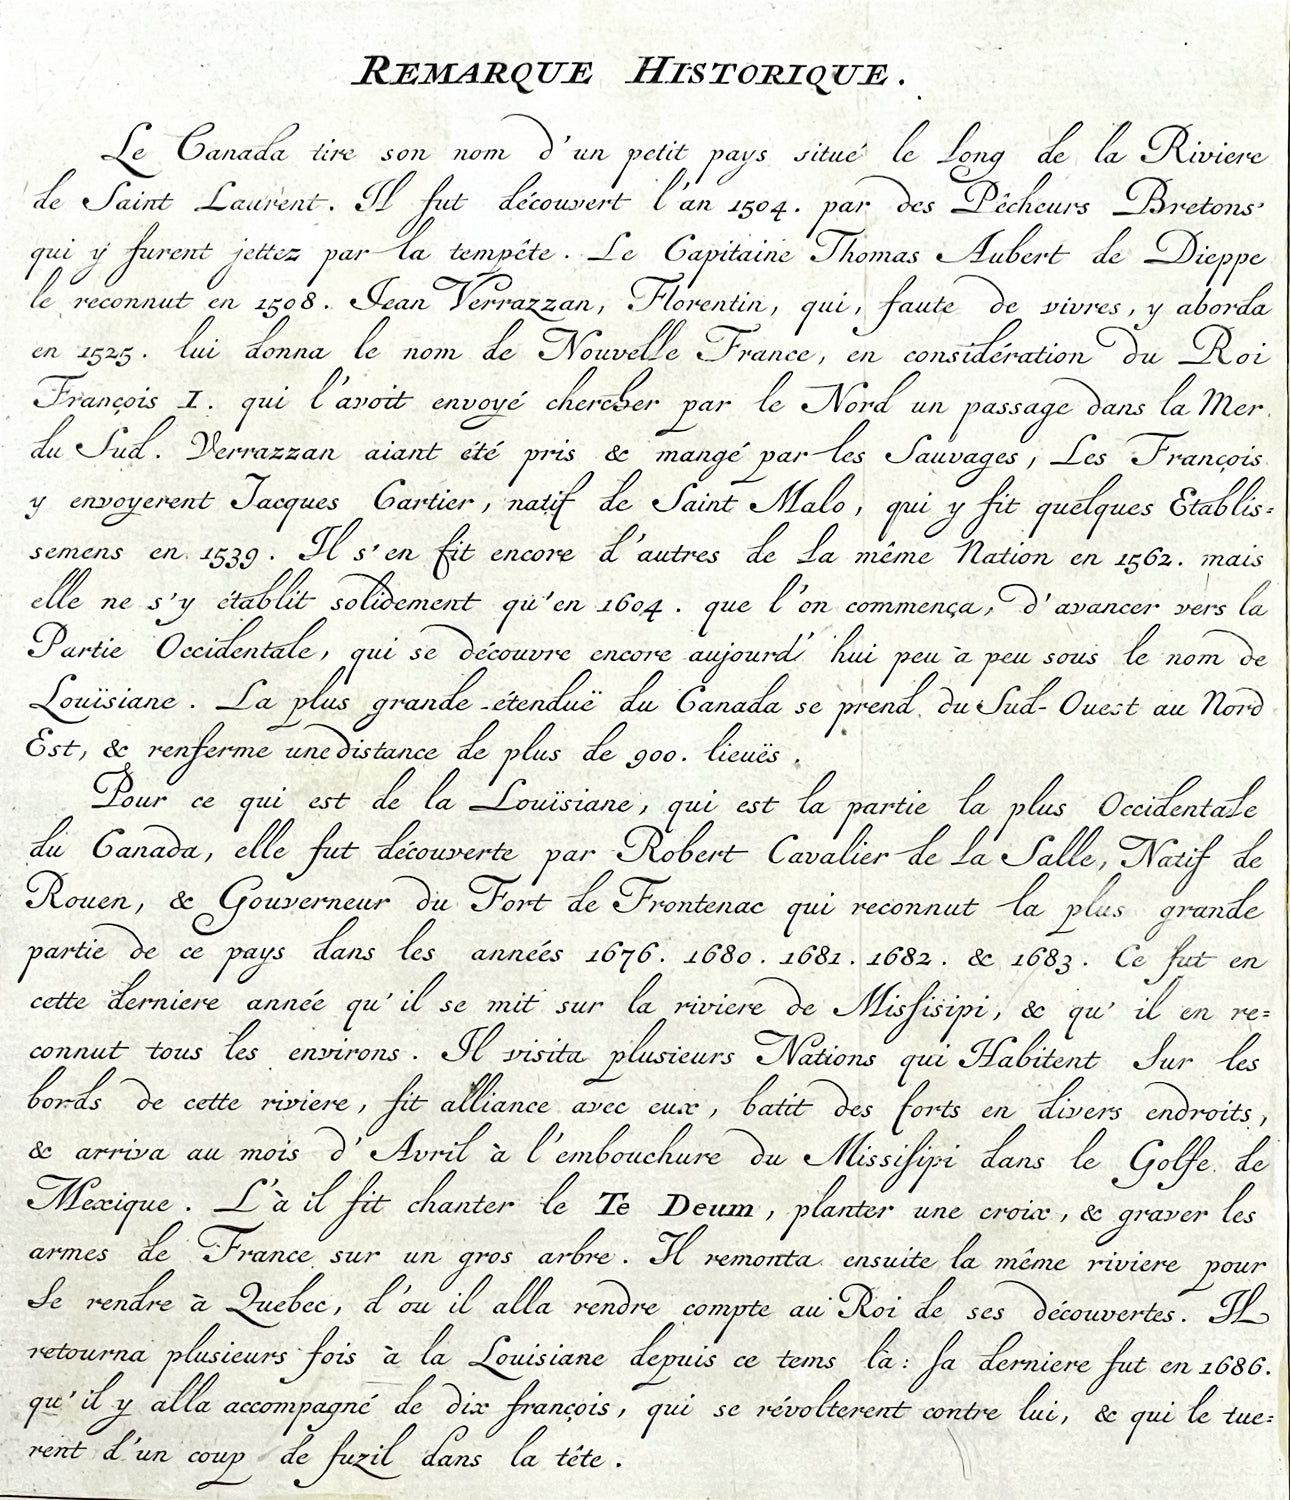 REMARQUE HISTORIQUE.
Le Canada tire son nom d'un petit pays situé le long de la Riviere
de Saint Laurent. Il fut découvert l'an 1504. par des Pêcheurs Bretons
qui y furent jettez par la tempête. Le Capitaine Thomas Aubert de Dieppe
le reconnut en 1508. Jean Verrazzan, Florentin, qui, faute de vivres, y aborda
en 1525. lui donna le nom de Nouvelle France, en considération du Roi
François I. qui l'avoit envoyé chercher par le Nord un passage dans la Mer
du Sud. Verrazzan aiant été pris & mangé par les Sauvages, Les François
y envoyerent Jacques Cartier, natif de Saint Malo, qui y fit quelques Etablis=
semens en 1539. Il s'en fit encore d'autres de la même Nation en 1562. mais
elle ne s'y établit solidement qu'en 1604. que l'on commença, d'avancer vers la
Partie Occidentale, qui se découvre encore aujourd'hui peu à peu sous le nom de
Louïsiane. La plus grande étenduë du Canada se prend du Sud-Ouest au Nord
Est, & renferme une distance de plus de 900. lieuës.
Pour ce qui est de la Louïsiane, qui est la partie la plus Occidentale
du Canada, elle fut découverte par Robert Cavalier de la Salle, Natif de
Rouen, & Gouverneur du Fort de Frontenac qui reconnut la plus grande
partie de ce pays dans les années 1676. 1680. 1681. 1682. & 1683. Ce fut en
cette derniere année qu'il se mit sur la riviere de Missisipi, & qu'il en re=
connut tous les environs. Il visita plusieurs Nations qui Habitent Sur les
bords de cette riviere, fit alliance avec eux, batit des forts en divers endroits,
& arriva au mois d'Avril à l'embouchure du Missisipi dans le Golfe de
Mexique. L'à il fit chanter le Te Deum, planter une croix, & graver les
armes de France sur un gros arbre. Il remonta ensuite la même riviere pour
Se rendre à Quebec, d'ou il alla rendre compte au Roi de ses découvertes. Il
retourna plusieurs fois à la Louisiane depuis ce tems là: sa derniere fut en 1686.
qu'il y alla accompagné de dix françois, qui se révolterent contre lui, & qui le tue=
rent d'un coup de fuzil dans la tête.